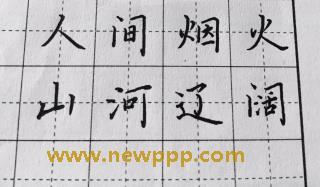 人间烟火
山河辽阔
www.newppp.com